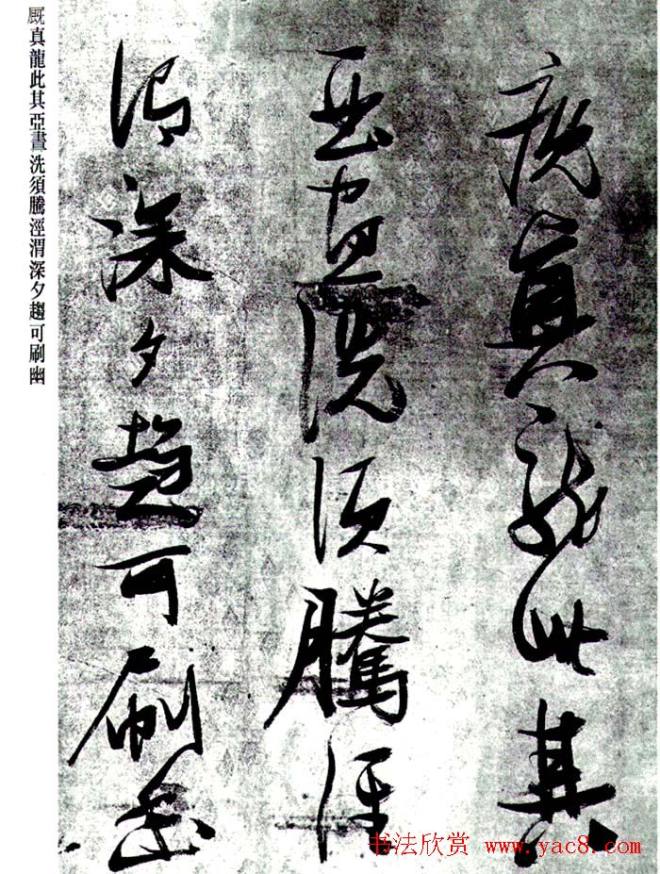 厩真龍此其
亞晝洗須騰涇
渭深夕趨可刷幽
厩真龍此其亞晝洗須騰涇渭深夕趨可刷幽
书法欣赏 www.yac8.com